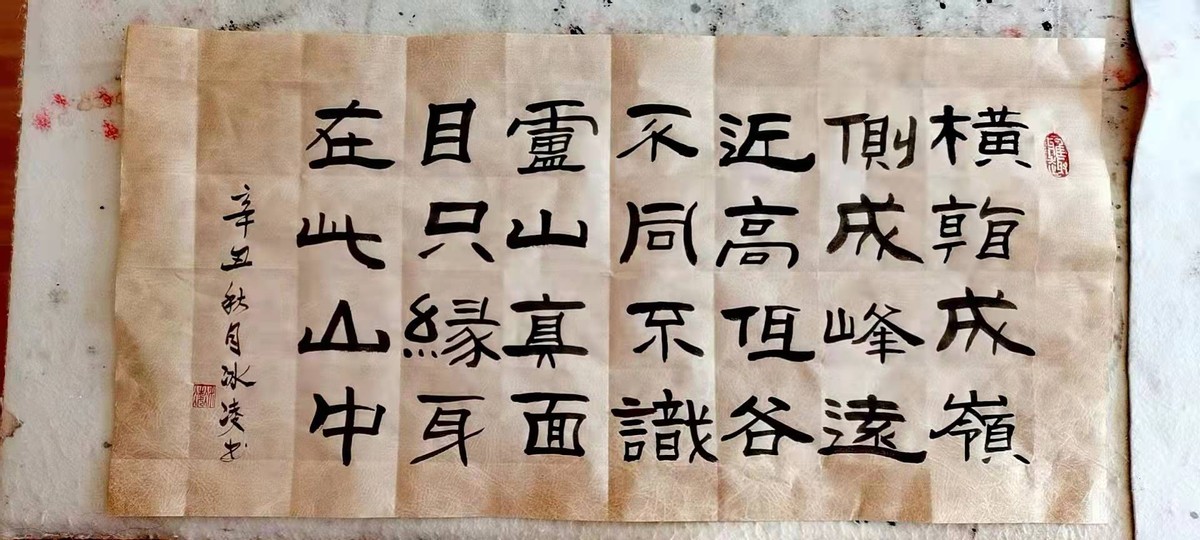 橫看成嶺
側成峰遠
近高低各
不同不識
盧山真面
目只緣身
在此山中
辛丑秋月冰凌书